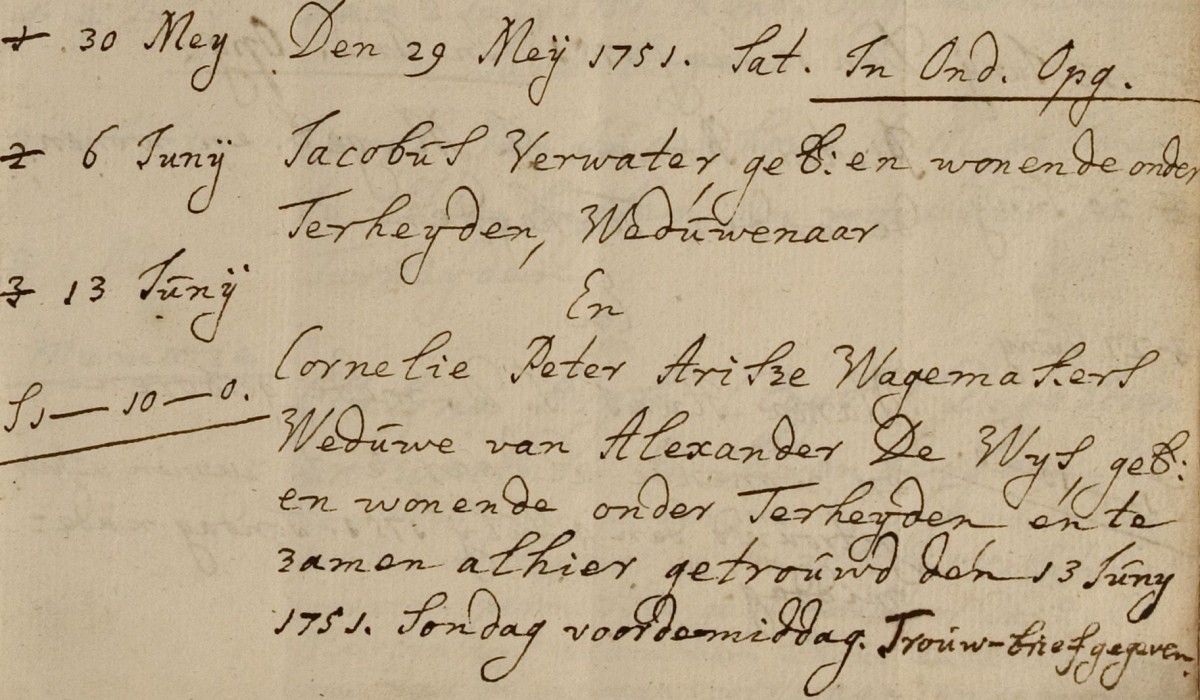 1 30 Meÿ
2 6 Junÿ
3 13 Junÿ
f1—10—0.
Den 29 Meÿ 1751. Sat. In Ond. Opg.
Jacobus Verwater, geb: en wonende onder
Terheyden, Weduwenaar
En
Cornelie Peter Ariske Wagemakers
Weduwe van Alexander De Wys, geb:
en wonende onder Terheyden en te
zamen alhier getrouwd den 13 Juny
1751. Sondag voordemiddag. Trouw-brief gegeven.